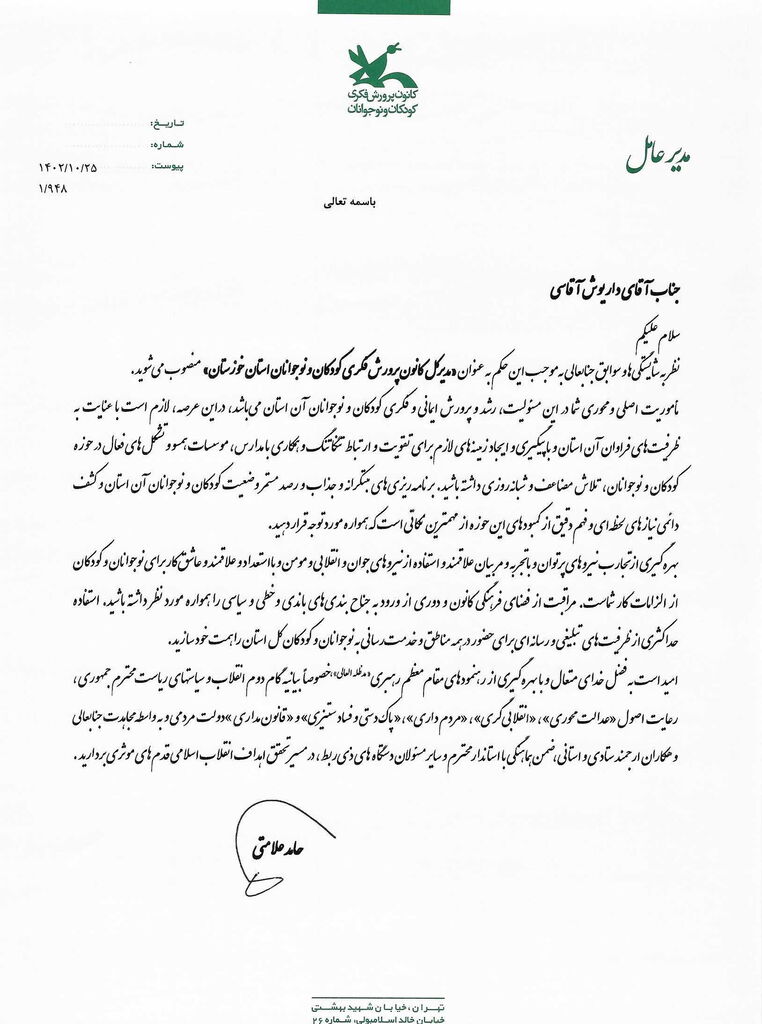 کانون پرورش فکری
کودکان و نوجوانان
تاریخ:
شماره:
پیوست:
۱۴۰۲/۱۰/۲۵
۱/۹۴۸
مدیر عامل
باسمه تعالی
جناب آقای داریوش آقاسی
سلام علیکم
نظر به شایستگی‌ها و سوابق جنابعالی به موجب این حکم به عنوان «مدیرکل کانون پرورش فکری کودکان و نوجوانان استان خوزستان» منصوب می‌شوید.
مأموریت اصلی و محوری شما در این مسئولیت، رشد و پرورش ایمانی و فکری کودکان و نوجوانان آن استان می‌باشد، در این عرصه، لازم است با عنایت به
ظرفیت‌های فراوان آن استان و با پیگیری و ایجاد زمینه‌های لازم برای تقویت و ارتباط تنگاتنگ و همکاری با مدارس، موسسات همسو و تشکل‌های فعال در حوزه
کودکان و نوجوانان، تلاش مضاعف و شبانه روزی داشته باشید. برنامه ریزی‌های مبتکرانه و جذاب و رصد مستمر وضعیت کودکان و نوجوانان آن استان و کشف
دائمی نیازهای لحظه‌ای و فهم دقیق از کمبودهای این حوزه از مهمترین نکاتی است که همواره مورد توجه قرار دهید.
بهره گیری از تجارب نیروهای پرتوان و با تجربه و مربیان علاقمند و استفاده از نیروهای جوان و انقلابی و مومن و با استعداد و علاقمند و عاشق کار برای نوجوانان و کودکان
از الزامات کار شماست. مراقبت از فضای فرهنگی کانون و دوری از ورود به جناح بندی‌های باندی و خطی و سیاسی را همواره مورد نظر داشته باشید. استفاده
حداکثری از ظرفیت‌های تبلیغی و رسانه‌ای برای حضور در همه مناطق و خدمت رسانی به نوجوانان و کودکان کل استان را همت خود سازید.
امید است به فضل خدای متعال و با بهره گیری از رهنمودهای مقام معظم رهبری «مدظله العالی»، خصوصاً بیانیه گام دوم انقلاب و سیاستهای ریاست محترم جمهوری،
رعایت اصول «عدالت محوری»، «انقلابی گری»، «مردم داری»، «پاک دستی و فساد ستیزی» و «قانون مداری» دولت مردمی و به واسطه مجاهدت جنابعالی
و همکاران ارجمند ستادی و استانی، ضمن هماهنگی با استاندار محترم و سایر مسئولان دستگاه‌های ذی ربط، در مسیر تحقق اهداف انقلاب اسلامی قدم‌های موثری بردارید.
حامد علامتی
تهران، خیابان شهید بهشتی
خیابان خالد اسلامبولی، شماره ۲۶